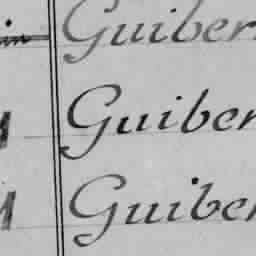 Guiber
Guiber
Guiber